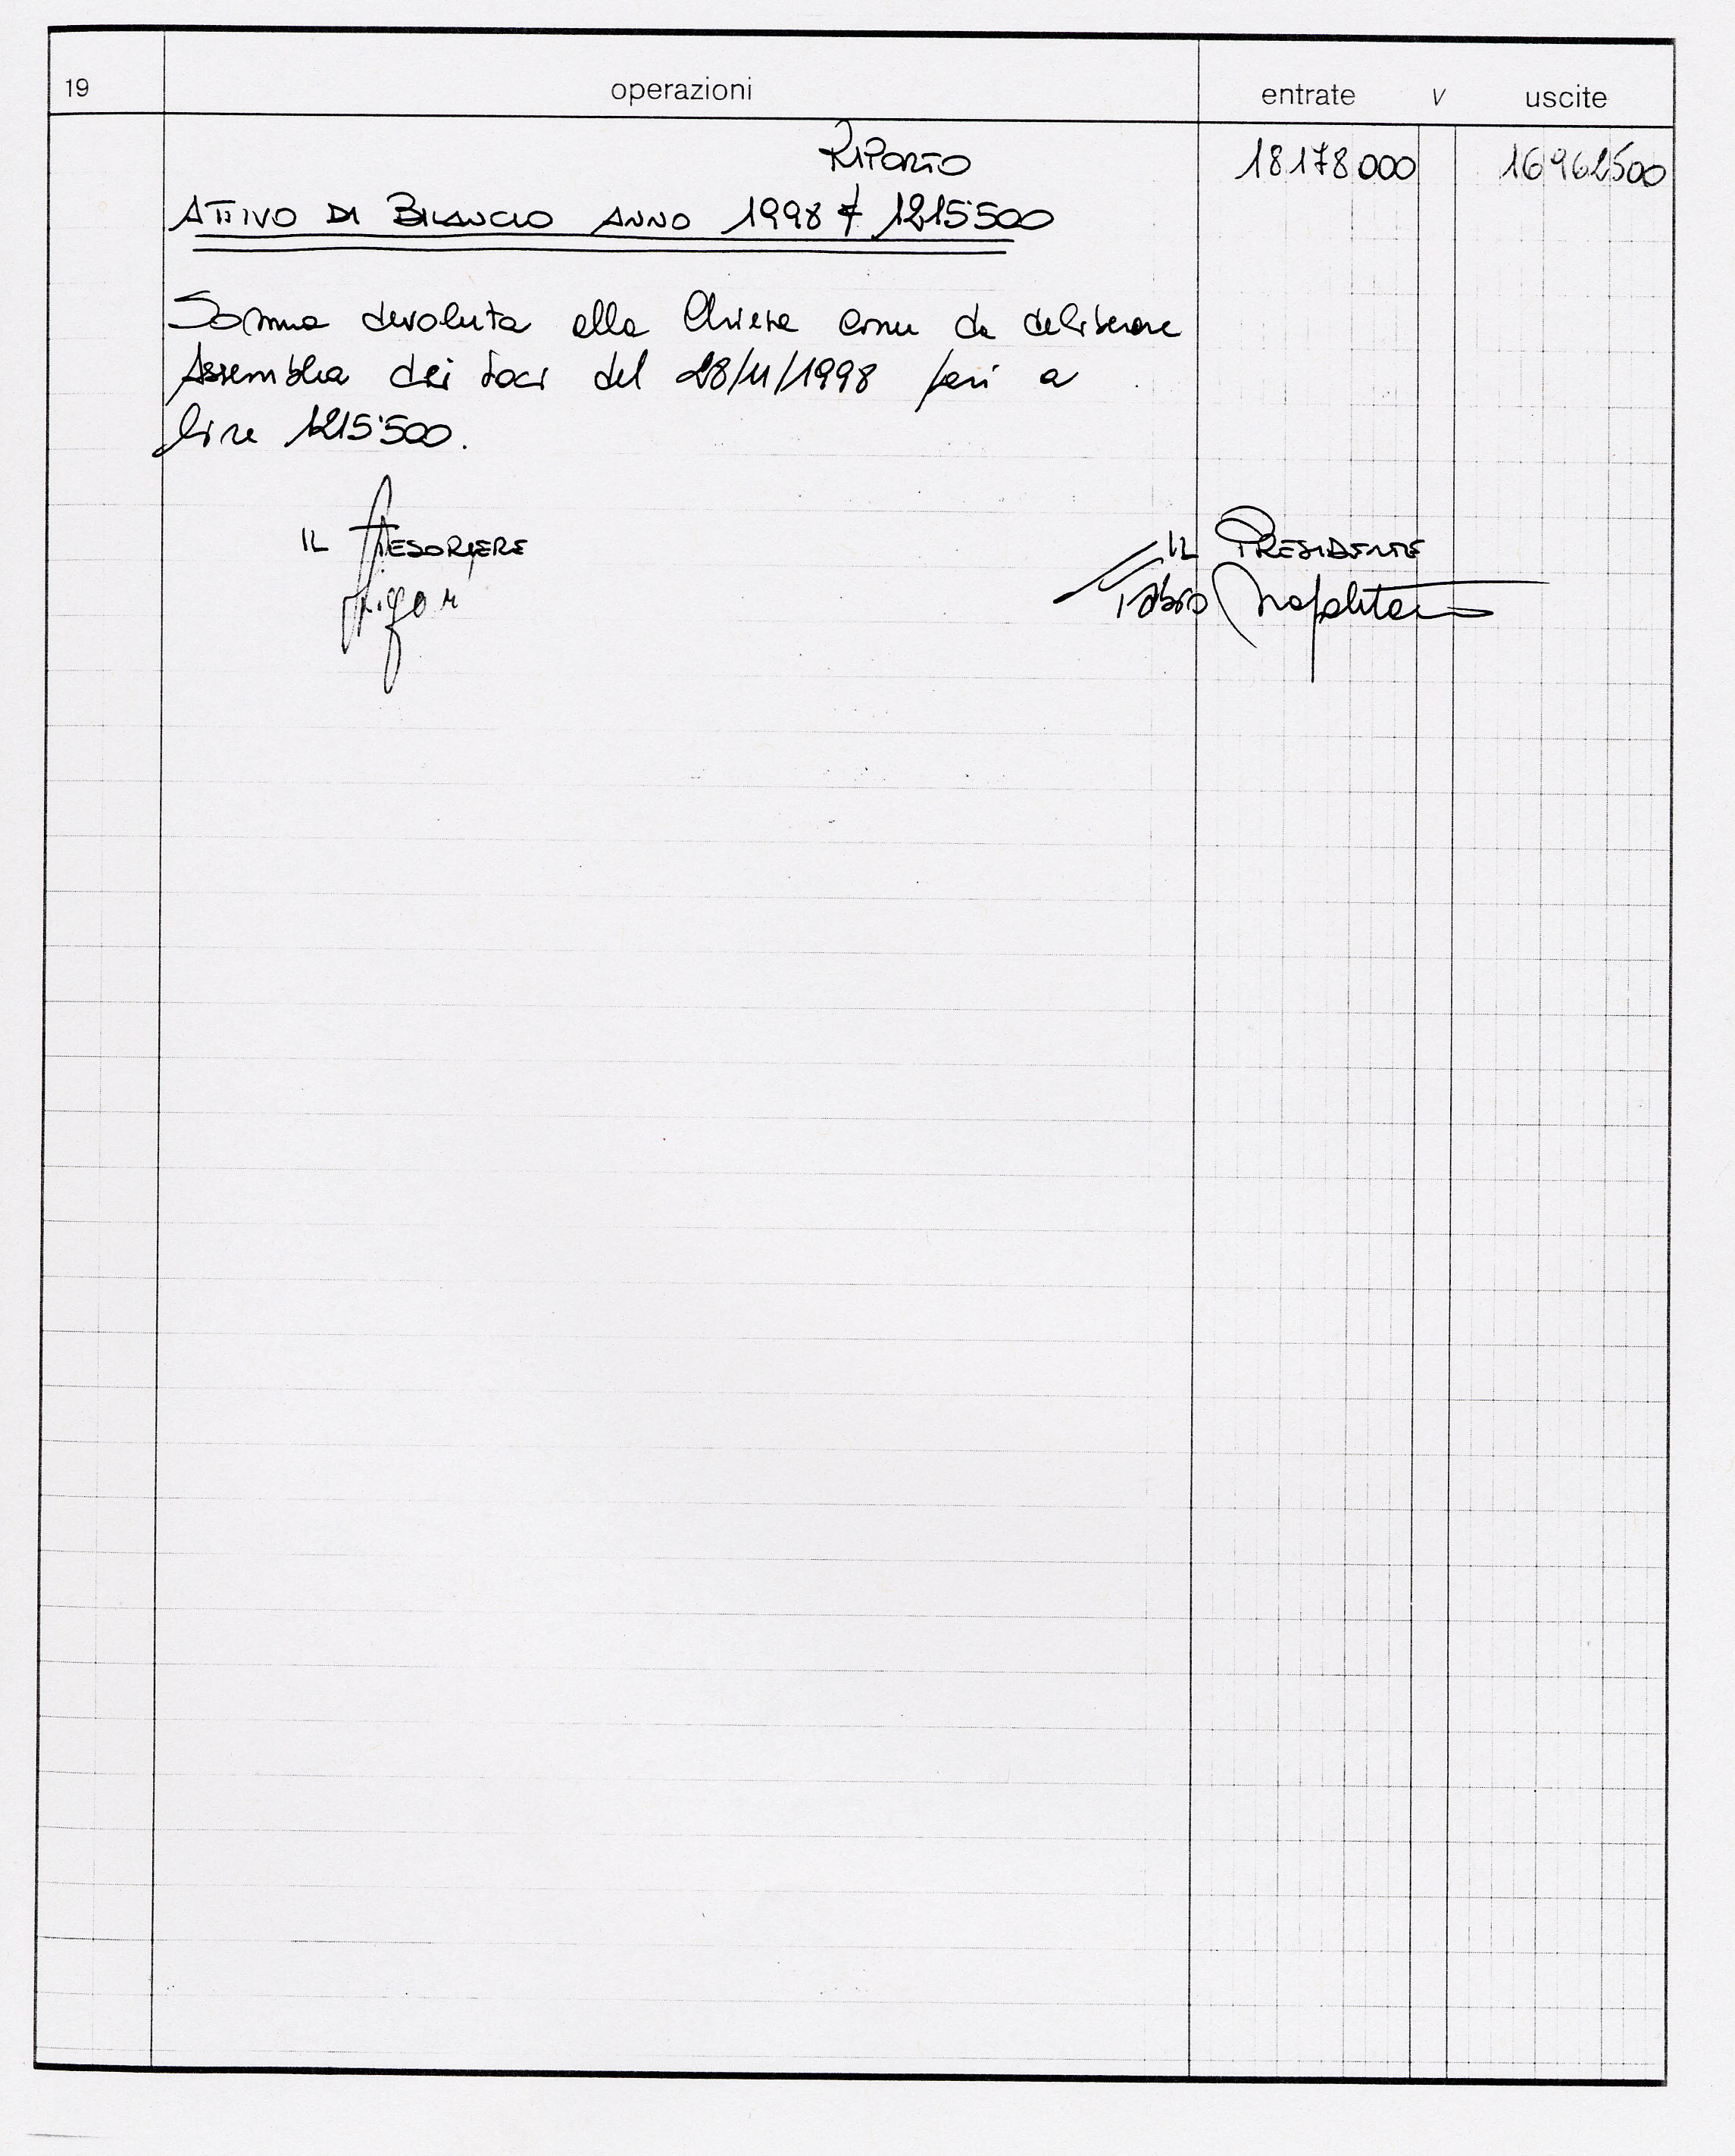 19 operazioni entrate v uscite
RIPORTO 18178000 16962500
ATTIVO DI BILANCIO ANNO 1998 £ 1215'500
Somma devoluta alla Chiesa come da delibera
Assemblea dei Soci del 28/11/1998 pari a
lire 1215'500.
IL TESORIERE IL PRESIDENTE
Fabio Napolitano